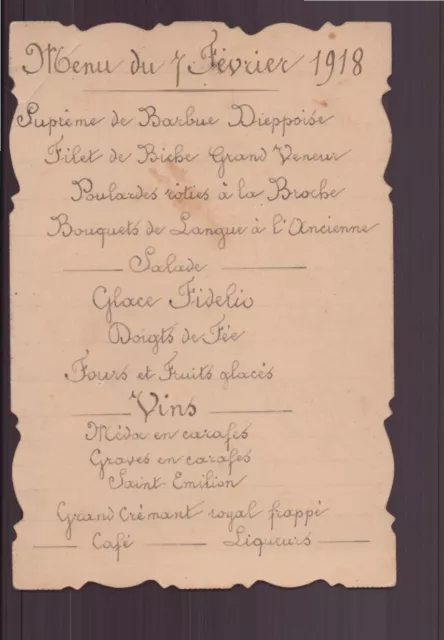 Menu du 7 Février 1918
Suprême de Barbue Dieppoise
Filet de Biche Grand Veneur
Poulardes rôties à la Broche
Bouquets de Langue à l'Ancienne
Salade
Glace Fidelio
Doigts de Fée
Fours et Fruits glacés
Vins
Médoc en carafes
Graves en carafes
Saint-Emilion
Grand Crémant royal frappé
Café Liqueurs